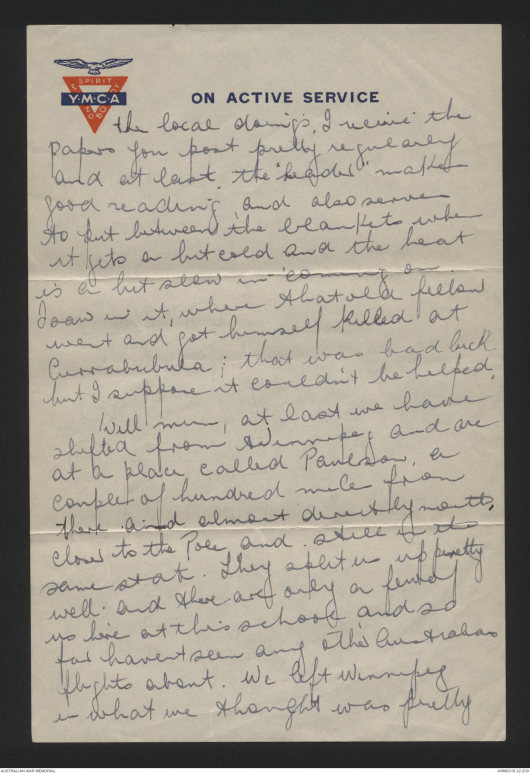 SPIRIT
MIND
BODY
Y·M·C·A
ON ACTIVE SERVICE
the local doings, I receive the
papers you post pretty regularly
and at last the "leader" makes
good reading and also serve
to put between the blankets when
it gets a bit cold and the heat
is a bit slow in coming on.
I saw in it, where that old fellow
went and got himself killed at
Currabubula; that was bad luck
but I suppose it couldn't be helped.
Well mum, at last we have
shifted from Winnipeg and are
at a place called Paulson, a
couple of hundred mile from
there and almost directly north,
closer to the Pole and still in the
same state. They split us up pretty
well and there are only a few of
us here at this school and so
far haven't seen any other Australian
flights about. We left Winnipeg
in what we thought was pretty
AUSTRALIAN WAR MEMORIAL